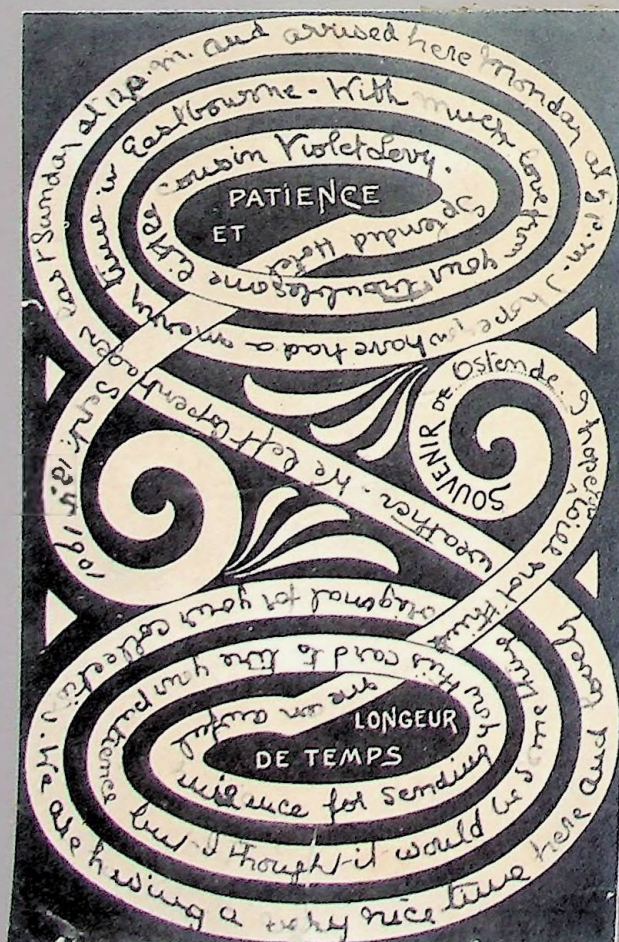 PATIENCE
ET
LONGEUR
DE TEMPS
Splendid Hotel Sept. 12th 1901
SOUVENIR DE Ostende. I hope you will not think me an awful nuisance for sending you this card to tire your patience but I thought it would be something original for your collection. We are having a very nice time here and lovely weather. We left Copenhagen last Sunday at 12 p.m. and arrived here Monday at 5 p.m. I hope you have had a merry time in Eastbourne. With much love from your troublesome little cousin Violet Levy.